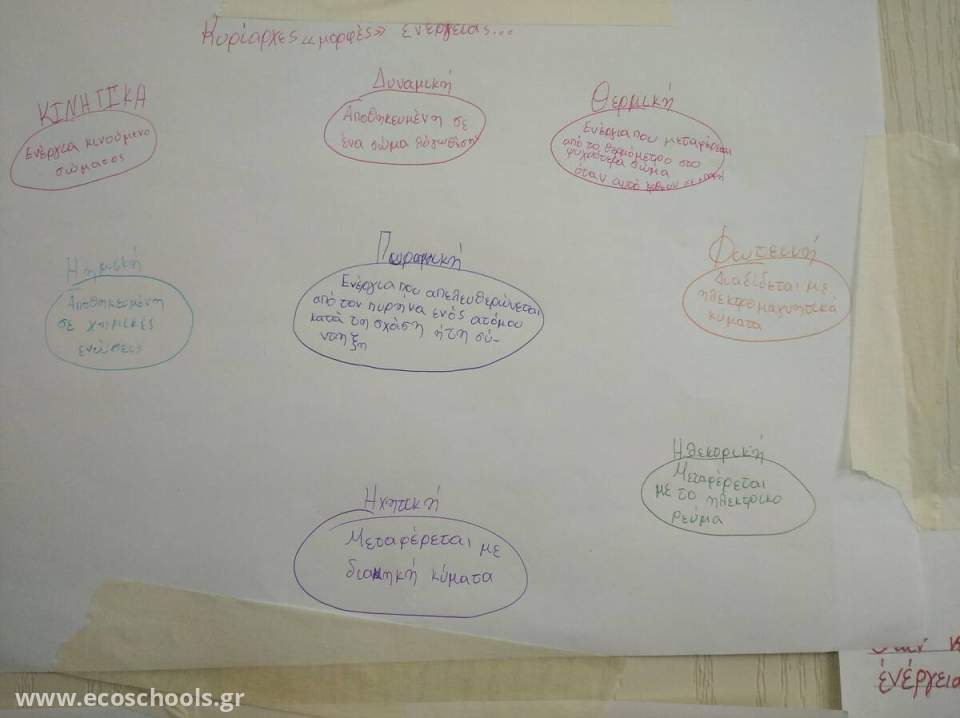 Κυρίαρχες «μορφές» ενέργειας...
ΚΙΝΗΤΙΚΑ
Ενέργεια κινούμενο
σώματος
Δυναμική
Αποθηκευμένη σε
ένα σώμα
Θερμική
Ενέργια που μεταφέρεται
από το θερμόμετρο στο
ψυχρότερο σώμα
όταν αυτά έρθουν σε
Αποθηκευμένη
σε χημικές
ενώσεις
Ενέργεια που απελευθερώνεται
από τον πυρήνα ενός ατόμου
κατά τη σχάση ή τη σύ-
ντηξη
Φωτεινή
Διαδίδεται με
ηλεκτρομαγνητικά
κύματα
Ηλεκορική
Μεταφέρεται
με το ηλεκτρικό
ρεύμα
Ηχητική
Μεταφέρεται με
κύματα
ενέργεια
www.ecoschools.gr